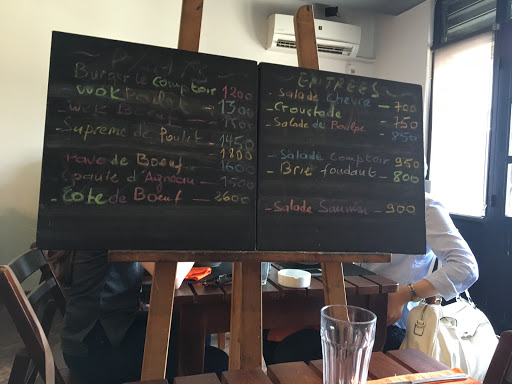 Plats
Burger le comptoir 1200
Wok Poulet 1300
Wok Boeuf 1500
Supreme de Poulet - 1450
1800
Pavé de Boeuf 1600
Epaule d'Agneau - 1500
- Cote de Boeuf - 2600
ENTREES
- Salade Chèvre - 700
- Croustade - 750
- Salade de Poulpe - 850
- Salade Comptoir 950
- Brie fondant - 800
- Salade - 900